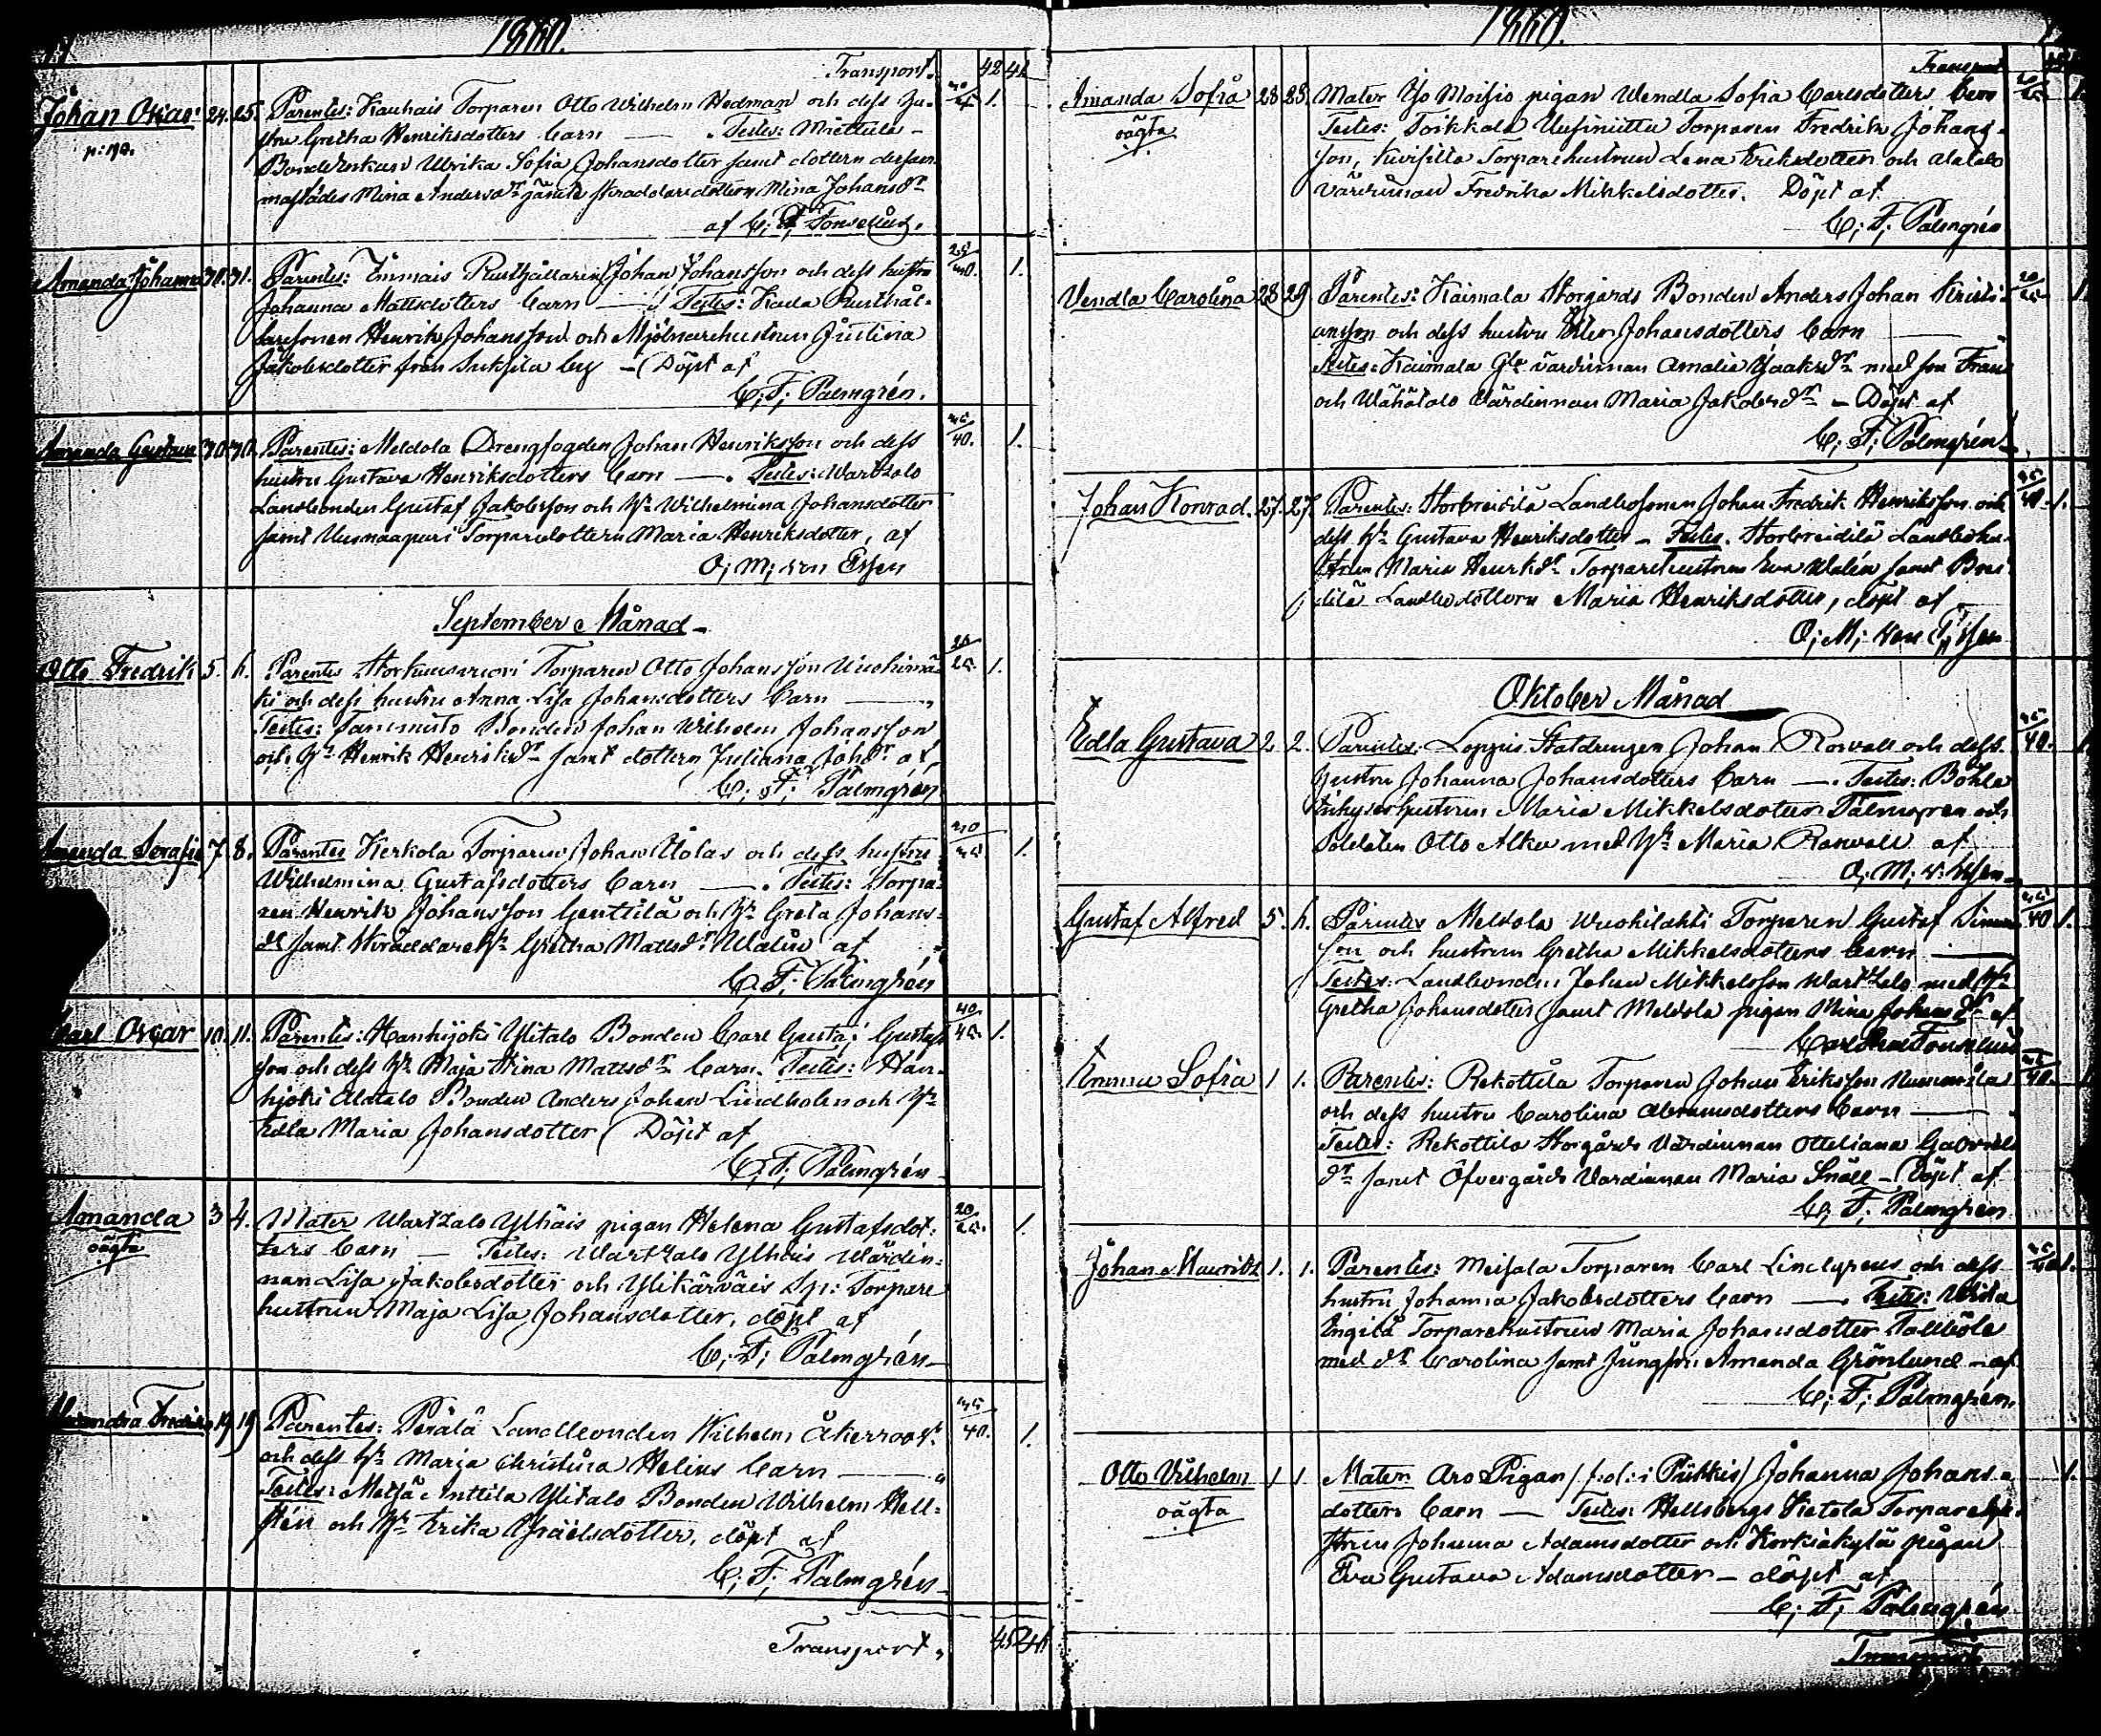 1860.
Transport. 42 41
Johan Oskar 24. 25. Parentes: Kauhais Torparen Otto Wilhelm Hedman och dess hu-
stru Gretha Henriksdotters Barn — . Testes: Miettula
Bondehustrun Ulrika Sofia Johansdotter samt dottern dersam-
mastädes Mina Andersdr jämte Skräddaredottern Mina Johansdr
af C. F. Fonselius.
Amanda Johanna 30. 31. Parentes: Immais Rusthållaren Johan Johansson och dess hustru
Johanna Mattsdotters Barn — Testes: Rusthål-
laresonen Henrik Johansson och Mjölnarehustrun Justina
Jakobsdotter från Suksela by — Döpt af
C; F; Palmgrén.
Amanda Gustava 30. 30. Parentes: Meldola Drengfogden Johan Henriksson och dess
hustru Gustava Henriksdotters Barn — . Testes: Wartsalo
Landbonden Gustaf Jakobsson och Hu Wilhelmina Johansdotter
samt Uusnaapuri Torparedottern Maria Henriksdotter, af
O; M; von Essen
September Månad
Otto Fredrik 5. 6. Parentes Torparen Otto Johansson
ki och dess hustru Anna Lisa Johansdotters Barn —
Testes: Bonden Johan Wilhelm Johansson
och Hu Henrik Henriksdr samt dottern Juliana Johdr af
C; F; Palmgrén
Amanda Serafia 7. 8. Parentes Kerkola Torparen Johan Uolas och dess hustru
Wilhelmina Gustafsdotters Barn — . Testes: Torpa-
ren Henrik Johansson Genttilä och Hu Greta Johans-
dr samt Skräddare Hu Gretha Mattsdr Walin af
C. F. Palmgrén
Carl Oscar 10. 11. Parentes: Hanhijoki Ylitalo Bonden Carl Gustaf Gustafs
son och dess Hu Maja Stina Mattsdr Barn. Testes: Han-
hijoki Alatalo Bonden Anders Johan Lindholm och Hu
Edla Maria Johansdotter Döpt af
C; F; Palmgrén
Amanda 3 4. Mater Wartsalo Ylhäis pigan Helena Gustafsdot-
oägta
ters Barn — Testes: Wartsalo Ylhäis Wärdin-
nan Lisa Jakobsdotter och Ylikärväis Torpare
hustrun Maja Lisa Johansdotter, döpt af
C; F; Palmgrén
Alexandra Fredrika 19 19 Parentes: Perälä Landbonden Wilhelm Åkerroos
och dess Hu Maria Christina Helins Barn —
Testes: Metsä Anttila Ylitalo Bonden Wilhelm Hell-
stén och Hu Erika Israelsdotter, döpt af
C; F; Palmgrén
Transport,
1860.
Transport
Amanda Sofia 28 28. Mater Iso Moisio pigan Wendla Sofia Carlsdotters Barn
oägta
Testes: Toikkala Uusiniittu Torparen Fredrik Johans-
son, Torparehustrun Lena Eriksdotter och Alatalo
värdinnan Fredrika Mikkelsdotter. Döpt af
C; F; Palmgrén
Vendla Carolina 28 29 Parentes: Kaimala Storgårds Bonden Anders Johan Kristi-
ansson och dess hustru Johansdotters Barn
Testes: Kaimala värdinnan Amalia Isaaksdr med son Frans
och Wähätalo Värdinnan Maria Jakobsdr — Döpt af
C; F; Palmgrén
Johan Konrad. 27. 27. Parentes: Storbreidilä Landbosonen Johan Fredrik Henriksson och
dess Hu Gustava Henriksdotter — Testes. Storbreidilä Landbohu-
strun Maria Henrksdr Torparehustrun Eva Walén samt Brei-
dilä Landbodottern Maria Henriksdotter, döpt af
O; M; von Essen
Oktober Månad
Edla Gustava 2 2. Parentes: Loppis Statdrengen Johan Rosvall och dess
hustru Johanna Johansdotters Barn — . Testes: Böhle
Inhyseshustrun Maria Mikkelsdotter Palmgren och
Soldaten Otto Alku med Hu Maria Rosvall af
O; M; v: Essen
Gustaf Alfred 5. 6. Parentes Meldola Wuohilahti Torparen Gustaf Simons
son och hustrun Gretha Mikkelsdotters barn —
Testes: Landbonden Johan Mikkelsson Wartsalo med Hu
Gretha Johansdotter samt Meldola pigan Mina Johansdr af
Fonselius
Emma Sofia 1 1. Parentes: Rekottila Torparen Johan Eriksson
och dess hustru Carolina Abramsdotters Barn —
Testes: Rekottila Storgårds Värdinnan Otteliana Gabriels
dr samt Öfvergårds Värdinnan Maria Snäll — Döpt af
C; F; Palmgrén
Johan Mauritz 1. 1. Parentes: Meisala Torparen Carl Lindgrens och dess
hustru Johanna Jakobsdotters Barn — . Testes:
Ingilä Torparehustrun Maria Johansdotter
med dr Carolina samt Jungfru Amanda Grönlund af
C; F; Palmgrén.
Otto Vilhelm 1 1 Mater Aro Pigan / f:d: i Piikkis / Johanna Johans-
oägta
dotters Barn — Testes: Hellsbergs Kietola Torparehu-
strun Johanna Adamsdotter och Korkiakylä pigan
Eva Gustava Adamsdotter — döpt af
C; F; Palmgrén
Transport